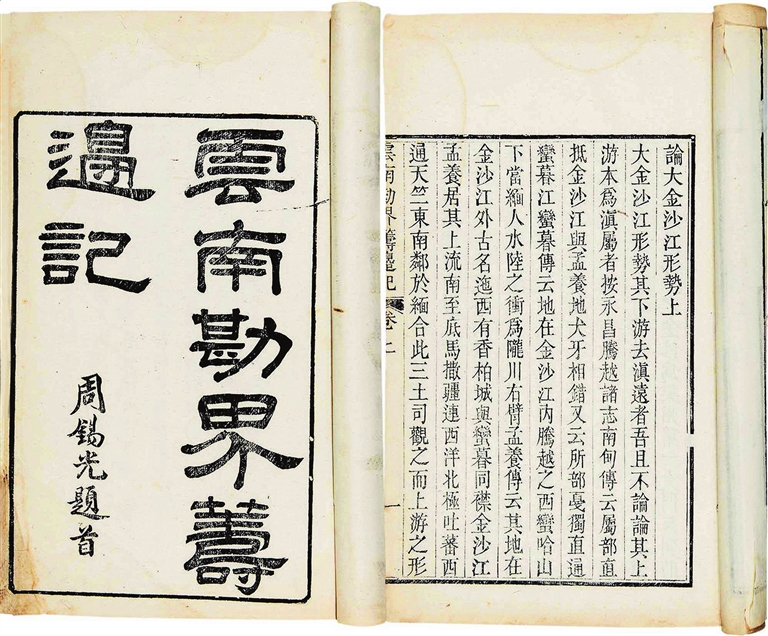 雲南勘界籌
邊記
周錫光題首
論大金沙江形勢上
大金沙江形勢其下游去滇遠者吾且不論論其上
游本爲滇屬者按永昌騰越諸志南甸傳云屬部直
抵金沙江與孟養地犬牙相錯又云所部戞獨直通
蠻暮江蠻暮傳云地在金沙江內騰越之西蠻哈山
下當緬人水陸之衝爲隴川右臂孟養傳云其地在
金沙江外古名迤西有香柏城與蠻暮同襟金沙江
孟養居其上流南至底馬撒疆連西洋北極吐蕃西
通天竺東南鄰於緬合此三土司觀之而上游之形
雲南勘界籌邊記 卷